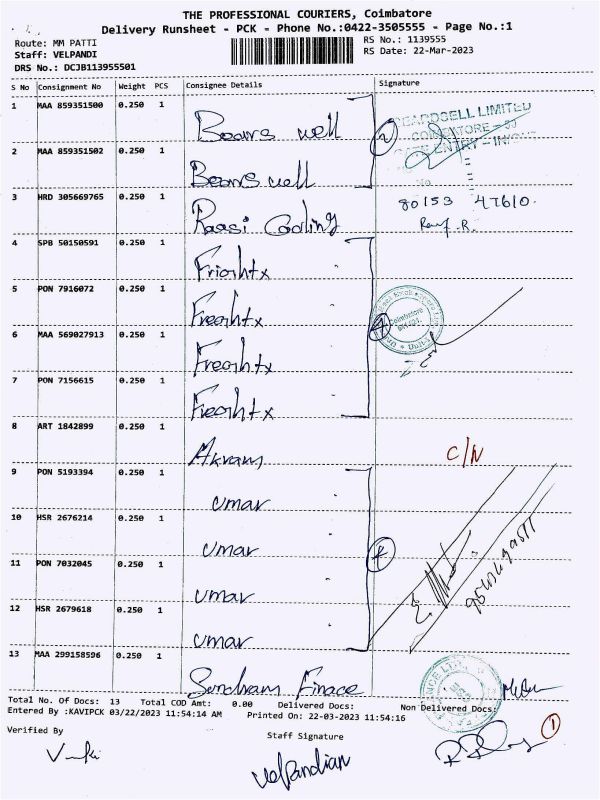 THE PROFESSIONAL COURIERS, Coimbatore
Delivery Runsheet - PCK - Phone No.:0422-3505555 - Page No.:1
Route: MM PATTI
RS No.: 1139555
Staff: VELPANDI
RS Date: 22-Mar-2023
DRS No.: DCJB113955501
S No Consignment No Weight PCS Consignee Details Signature
1 MAA 859351500 0.250 1 Beans well
BEARDSELL LIMITED
COIMBATORE - 30
GATE ENTRY - IN/OUT
No
2 MAA 859351502 0.250 1 Beans well
2
3 HRD 305669765 0.250 1 Raasi Cooling
80153 47610.
4 SPB 50150591 0.250 1 Frioshtx
5 PON 7916072 0.250 1 Freoshtx
4
Coimbatore
6 MAA 569027913 0.250 1 Freoshtx
7 PON 7156615 0.250 1 Freoshtx
8 ART 1842899 0.250 1 Akram
C/N
9 PON 5193394 0.250 1 Umar
10 HSR 2676214 0.250 1 Umar
11 PON 7032045 0.250 1 Umar
12 HSR 2679618 0.250 1 Umar
13 MAA 299158596 0.250 1 Sundram Finace
Total No. Of Docs: 13 Total COD Amt: 0.00 Delivered Docs: Non Delivered Docs:
1
Entered By :KAVIPCK 03/22/2023 11:54:14 AM Printed On: 22-03-2023 11:54:16
Verified By
Staff Signature
Velpandian